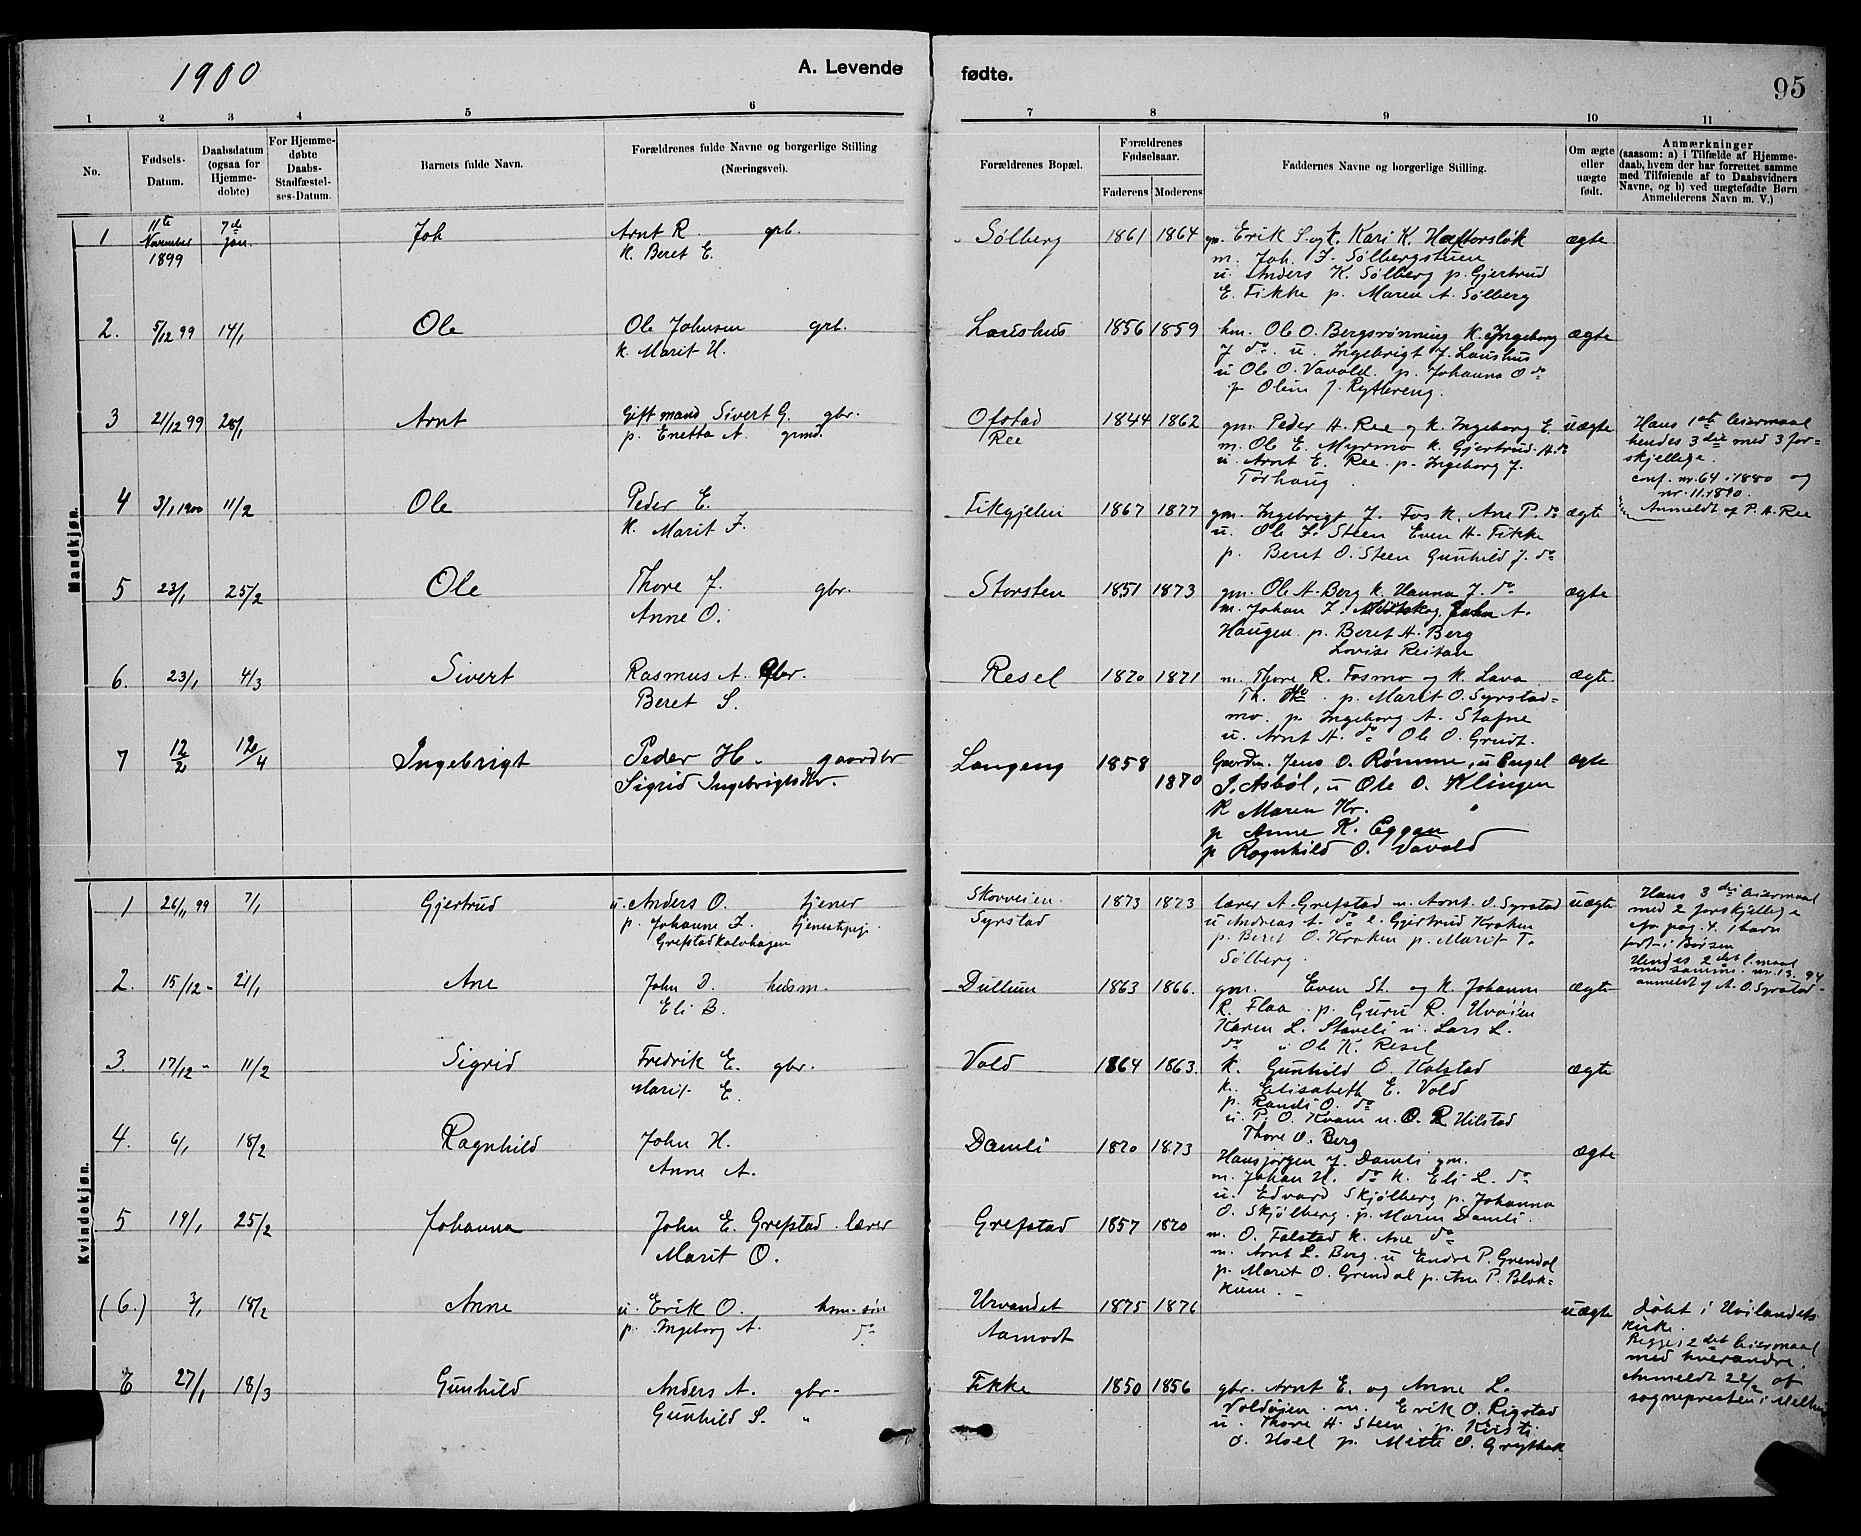 1900
A. Levende fødte.
95
1 2 3 4 5 6 7 8 9 10 11
No.
Fødsels-Datum.
Daabsdatum (ogsaa for Hjemme-døbte)
For Hjemme-døbte Daabs-Stadfæstel-ses-Datum.
Barnets fulde Navn.
Forældrenes fulde Navne og borgerlige Stilling (Næringsvei).
Forældrenes Bopæl.
Forældrenes Fødselsaar.
Faderens Moderens
Faddernes Navne og borgerlige Stilling.
Om ægte eller uægte født.
Anmærkninger
(saasom: a) i Tilfælde af Hjemme-
daab, hvem der har forrettet samme
med Tilføiende af to Daabsvidners
Navne, og b) ved uægtefødte Børn
Anmelderens Navn m. V.)
Mandkjøn.
1 11te November 1899 7de Jan. Joh Arnt R. grb. Sølberg 1861 1864 gm. Erik S. og k. Kari K. Haftorsløk ægte
k. Beret E. m. Joh. J. Sølbergstuen
u. Anders K. Sølberg p. Gjertrud
E. Fikke p. Maren A. Sølberg
2. 5/12 99 14/1 Ole Ole Johnsen grb. Laushus 1856 1859 hm. Ole O. Bergsrønning k. Ingeborg ægte
k. Marit H. J. do. u. Ingebrigt J. Laushus
u Ole O. Vavold. p. Johanna O do
p. Oline J. Ryttereng.
3 21/12 99 28/1 Arnt Gift mand Sivert G. gbr. Ofstad 1844 1862 gm. Peder H. Ree og k. Ingeborg E. uægte Hans 1ste leiermaal
p. Enetta A. grmd. Ree m. Ole E. Myrmo k. Gjertrud H. do hendes 3die med 3 for-
u. Arnt E. Ree p. Ingeborg J. skjellige.
Torhaug conf. nr. 64 i 1880 og
nr. 11. 1890.
Anmeldt af P. H. Ree
4 3/1 1900 11/2 Ole Peder E. Fikgjelen 1867 1877 gm. Ingebrigt J. Fos k. Ane P. do ægte
k. Marit J. u. Ole J. Steen Even H. Fikke
p. Beret O. Steen Gunhild J. do
5 23/1 25/2 Ole Thore J. gbr. Storsten 1851 1873 gm. Ole A. Berg k. Hanna J. do ægte
Anne O. m. Johan J. John A.
Haugen p. Beret H. Berg
Lovise Reitan
6. 23/1 4/3 Sivert Rasmus A. Gbr. Resel 1870 1871 m. Thore R. Fosmo og k. Lava ægte
Beret S. Th. do. p. Marit O. Syrstad-
mo. p. Ingeborg A. Stafne
u. Arnt H. do Ole O. Grudt.
7 12/2 Ingebrigt Peder H. gaardbr Langeng 1858 1870 Gaardm. Jens O. Rømme, u Engel ægte
Sigrid Ingebrigtsdtr. J. Asbøl, u Ole O. Klingen
k Maren Hr.
p Anne K. Eggan
p Ragnhild O. Vavold
Kvindekjøn.
1 26/11 99 7/1 Gjertrud u. Anders O. tjener Skovveien 1873 1873 lærer A. Grefstad m. Arnt O. Syrstad uægte Hans 3die leiermaal
p. Johanne J. Syrstad u Andreas A. do e. Gjertrud Kroken med 2 forskjellige
Grefstadkalvhagen p. Beret O. Kroken p. Marit T. cfr pag. 4. 1 barn
Sølberg. født i Børsen
Hendes 2det l.maal
med samme. nr. 13. 94
anmeldt af A. O. Syrstad
2. 15/12 - 21/1 Ane John D. husm. Dullum 1863 1866. gm. Even St. og k. Johanne ægte
Eli B. R. Flaa p. Guru R. Uvøien
Karen L. Staveli u. Lars L.
do u Ole K. Resel
3. 17/12 - 11/2 Sigrid Fredrik E. gbr. Vold 1864 1863. k. Gunhild O. Kalstad ægte
Marit E. k. Elisabeth E. Vold
p. Randi O. do
u. P. O. Kvam u. O. R Hilstad
Thore O. Berg
4. 6/1 18/2 Ragnhild John H. Damli 1870 1873 Hansjørgen J. Damli gm. ægte
Anne A. m. Johan H. do k. Eli L. do
u. Edvard Skjølberg p. Johanna
O. Skjølberg. p. Maren Damli.
5 19/1 25/2 Johanna John E. Grefstad lærer Grefstad 1857 1870 m. O. Falstad k. Ane do
Marit O. m. Arnt L. Berg. u Endre P. Grendal
p. Marit O. Grendal p. Ane P. Blok-
kum.
(6.) 3/1 18/2 Anne u. Erik O. hsm. søn Urvandet 1875 1876 uægte Døbt i Hølandets
p. Ingeborg A. do Aamodt kirke.
Begges 2det leiermaal
med hverandre.
Anmeldt 22/2 af
sognepresten i Melhus
6 27/1 18/3 Gunhild Anders A. gbr. Fikke 1850 1856 gbr. Arnt E. og Anne L.
Gunhild S. " Voldøien m. Erik O. Rigstad
u. Thore H. Steen p. Kirsti
O. Usel p. Mette O. Grytbak